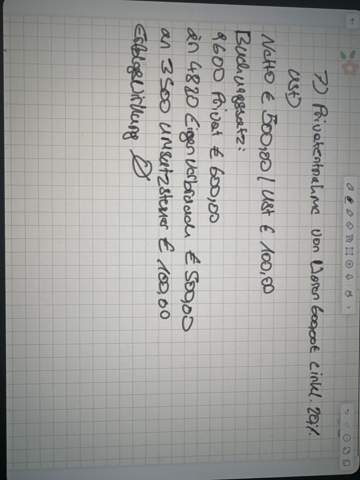 7) Privatentnahme von Waren 600,00€ einkl. 20%
USt)
Netto € 500,00 / USt € 100,00
Buchungssatz:
9600 Privat € 600,00
an 4820 Eigenverbrauch € 500,00
an 3500 Umsatzsteuer € 100,00
Erfolgswirkung